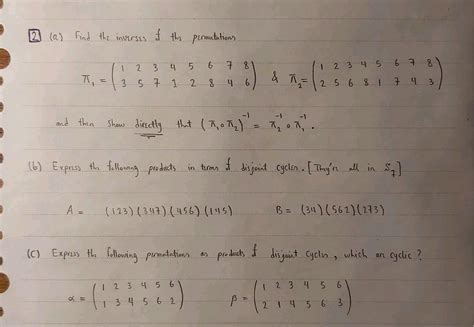 2 (a) Find the inverses of the permutations
π₁ = ( 1 2 3 4 5 6 7 8 ) & π₂ = ( 1 2 3 4 5 6 7 8 )
( 3 5 7 1 2 8 4 6 ) ( 2 5 6 8 1 7 4 3 )
and then show directly that (π₁∘π₂)⁻¹ = π₂⁻¹∘π₁⁻¹.
(b) Express the following products in terms of disjoint cycles. [They're all in S₇]
A = (123)(347)(456)(145) B = (34)(562)(273)
(c) Express the following permutations as products of disjoint cycles, which are cyclic?
α = ( 1 2 3 4 5 6 ) β = ( 1 2 3 4 5 6 )
( 1 3 4 5 6 2 ) ( 2 1 4 5 6 3 )